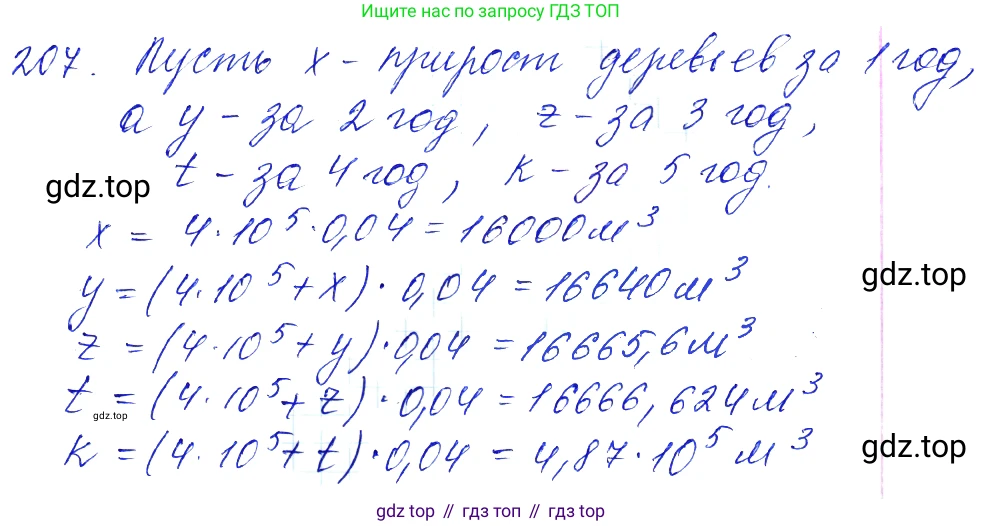 Ищите нас по запросу ГДЗ ТОП
207. Пусть x - прирост деревьев за 1 год,
а y - за 2 год, z - за 3 год,
t - за 4 год, к - за 5 год.
gdz.top
x = 4·10⁵·0,04 = 16000м³
y = (4·10⁵+x)·0,04 = 16640м³
gdz.top
z = (4·10⁵+y)·0,04 = 16665,6м³
t = (4·10⁵+z)·0,04 = 16666,624м³
gdz.top
к = (4·10⁵+t)·0,04 = 4,87·10⁵ м³
gdz.top
gdz top // гдз топ // gdz top